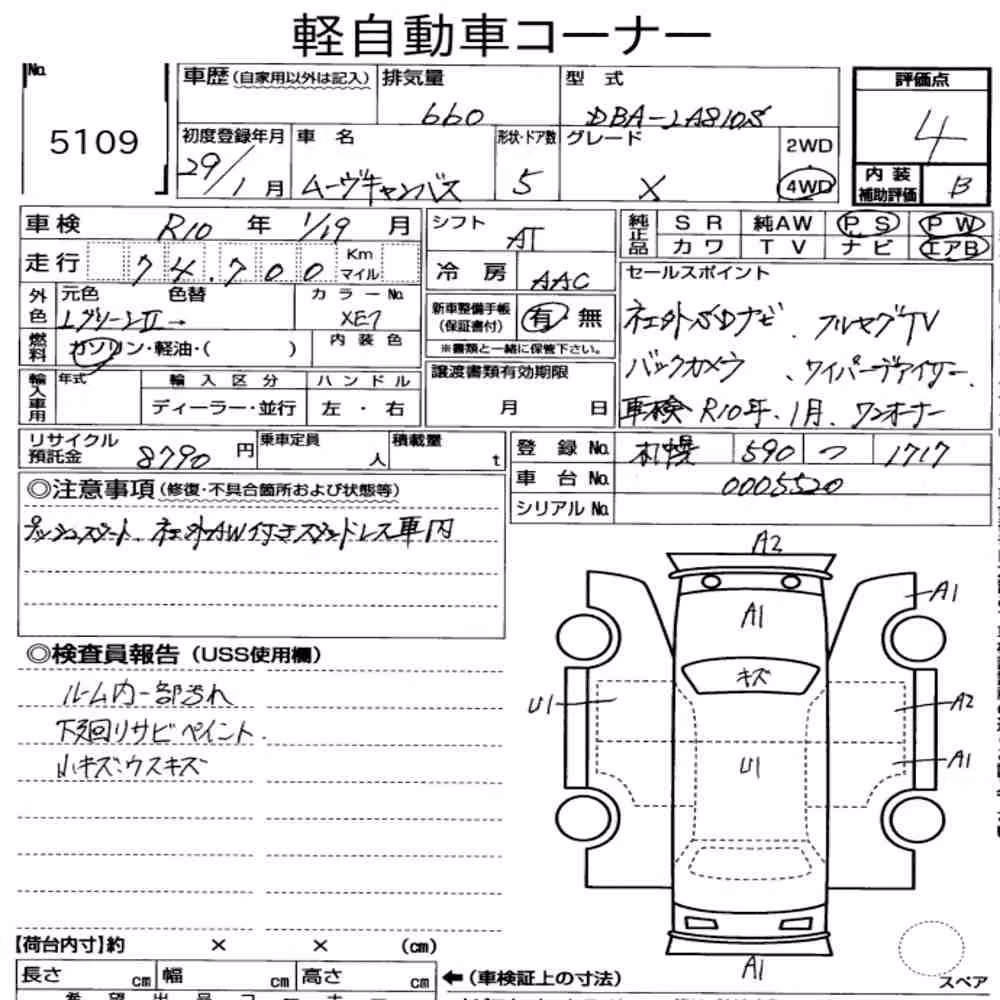 軽自動車コーナー
No. 5109
車歴(自家用以外は記入) 排気量 660 型式 DBA-LA810S 評価点 4
初度登録年月 29/1月 車名 ムーヴキャンバス 形状・ドア数 5 グレード X 2WD 4WD 内装補助評価 B
車検 R10年 1/19月 シフト AT 純正品 SR 純AW PS PW
カワ TV ナビ エアB
走行 74,700 Km マイル 冷房 AAC
セールスポイント
外色 元色 色替 カラーNo. 新車整備手帳(保証書付) 有 無
LグリーンII→ XE7 ※書類と一緒に保管下さい。
社外SDナビ、フルセグTV
燃料 ガソリン・軽油・( ) 内装色
バックカメラ、ワイパーデアイサー
輸入車用 年式 輸入区分 ハンドル 譲渡書類有効期限
ディーラー・並行 左・右 月 日
車検R10年.1月.ワンオーナー
リサイクル預託金 8790円 乗車定員 人 積載量 t
登録No. 札幌 590 つ 1717
車台No. 0005520
シリアルNo.
◎注意事項(修復・不具合箇所および状態等)
プッシュスタート、社外AW付きスタッドレス車内
◎検査員報告(USS使用欄)
ルーム内一部汚れ
下廻りサビペイント.
小キズ、ウスキズ
A2
A1
A1
キズ
U1
A2
U1
A1
A1
スペア
【荷台内寸】約 × × (cm)
長さ cm 幅 cm 高さ cm ←(車検証上の寸法)